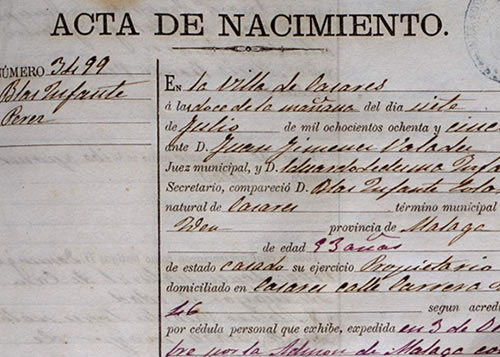 ACTA DE NACIMIENTO.
NÚMERO 3499
Blas Infante
Perez
EN la Villa de Casares
á las doce de la mañana del dia siete
de Julio de mil ochocientos ochenta y cinc
ante D. Juan Jimenez
Juez municipal, y D. Eduardo Ledesma Infa
Secretario, compareció D. Blas Infante
natural de Casares término municipal
Idem provincia de Malaga
de edad 23 años
de estado casado su ejercicio Propietario
domiciliado en Casares calle Carrera
46 segun acredi
por cédula personal que exhibe, expedida en 3 de Oc
bre por la Admon de Malaga con